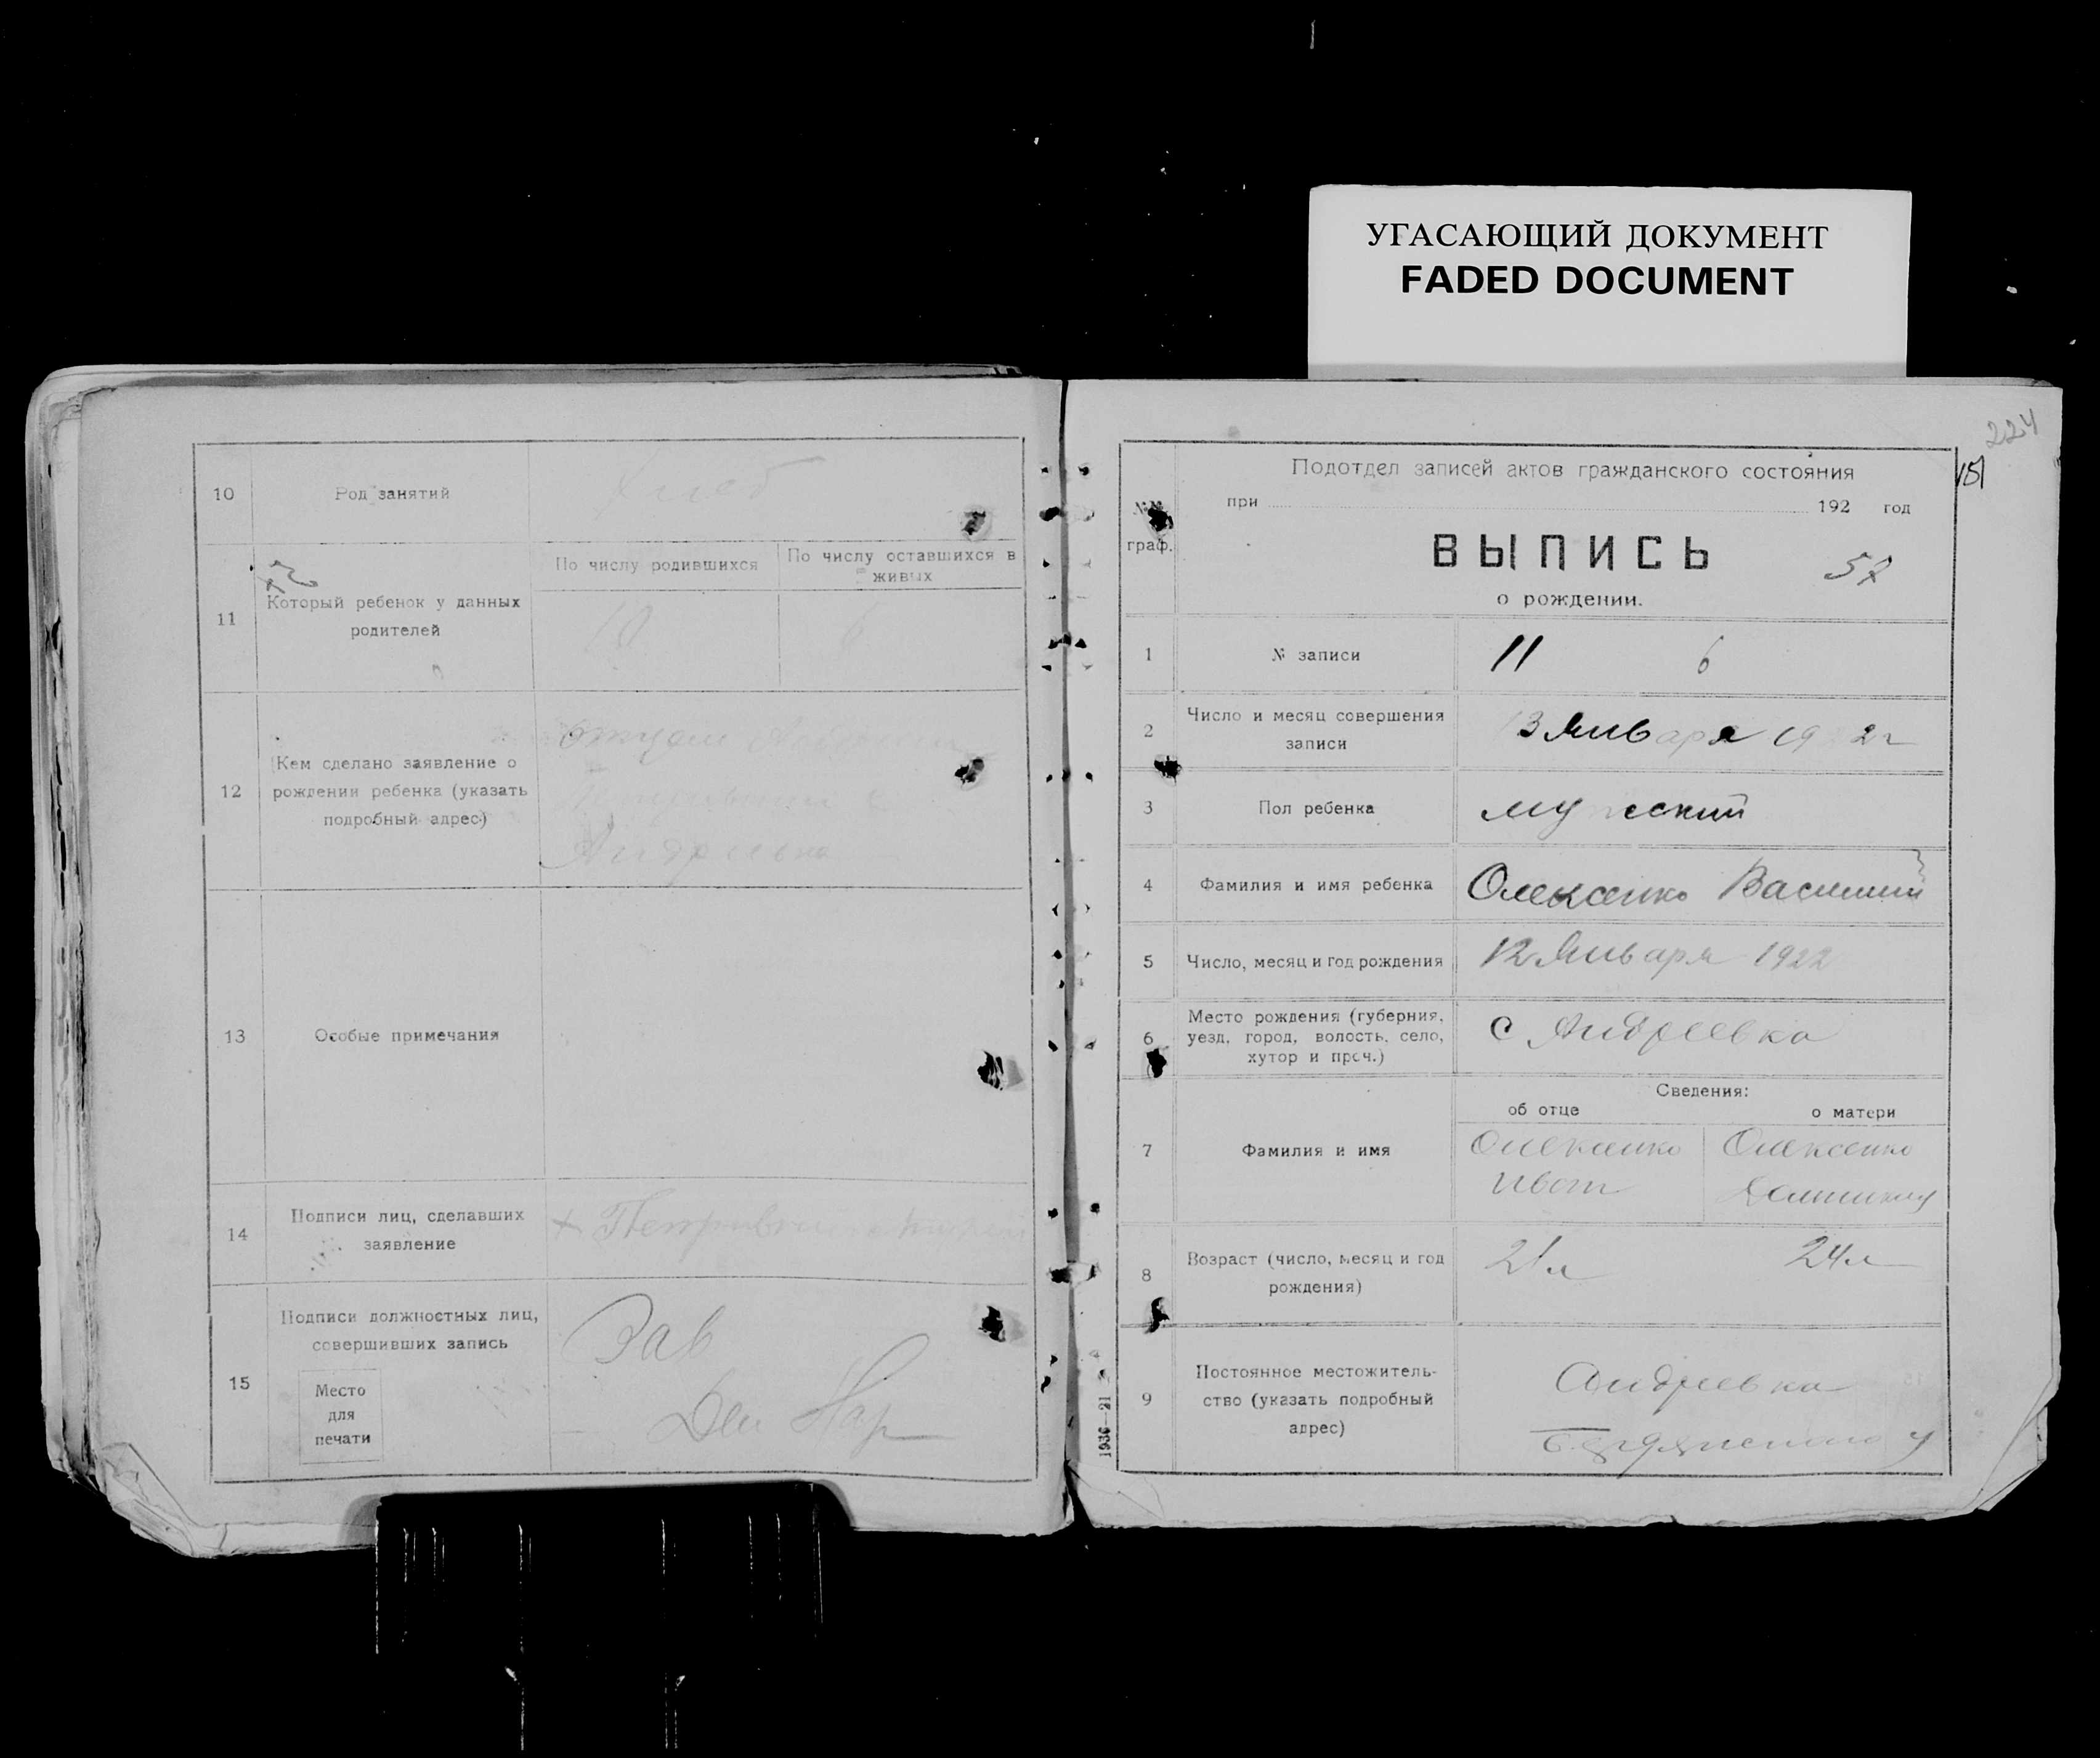 УГАСАЮЩИЙ ДОКУМЕНТ
FADED DOCUMENT
10
Род занятий
Хлеб
11
Который ребенок у данных
родителей
По числу родившихся
По числу оставшихся в
живых
10
6
12
Кем сделано заявление о
рождении ребенка (указать
подробный адрес)
отцом
Андреевка
13
Особые примечания
14
Подписи лиц, сделавших
заявление
+
15
Подписи должностных лиц,
совершивших запись
Место
для
печати
Зав
224
151
№№
граф.
Подотдел записей актов гражданского состояния
при 192 год
ВЫПИСЬ
58
о рождении.
1
№ записи
11 6
2
Число и месяц совершения
записи
13 Января 1922 г
3
Пол ребенка
мужеский
4
Фамилия и имя ребенка
Олексенко Василий
5
Число, месяц и год рождения
12 Января 1922
6
Место рождения (губерния,
уезд, город, волость, село,
хутор и проч.)
с Андреевка
Сведения:
об отце
о матери
7
Фамилия и имя
Олексенко
Олексенко
8
Возраст (число, месяц и год
рождения)
21 л
24 л
9
Постоянное местожитель-
ство (указать подробный
адрес)
Андреевка
Бердянского у
1936—21